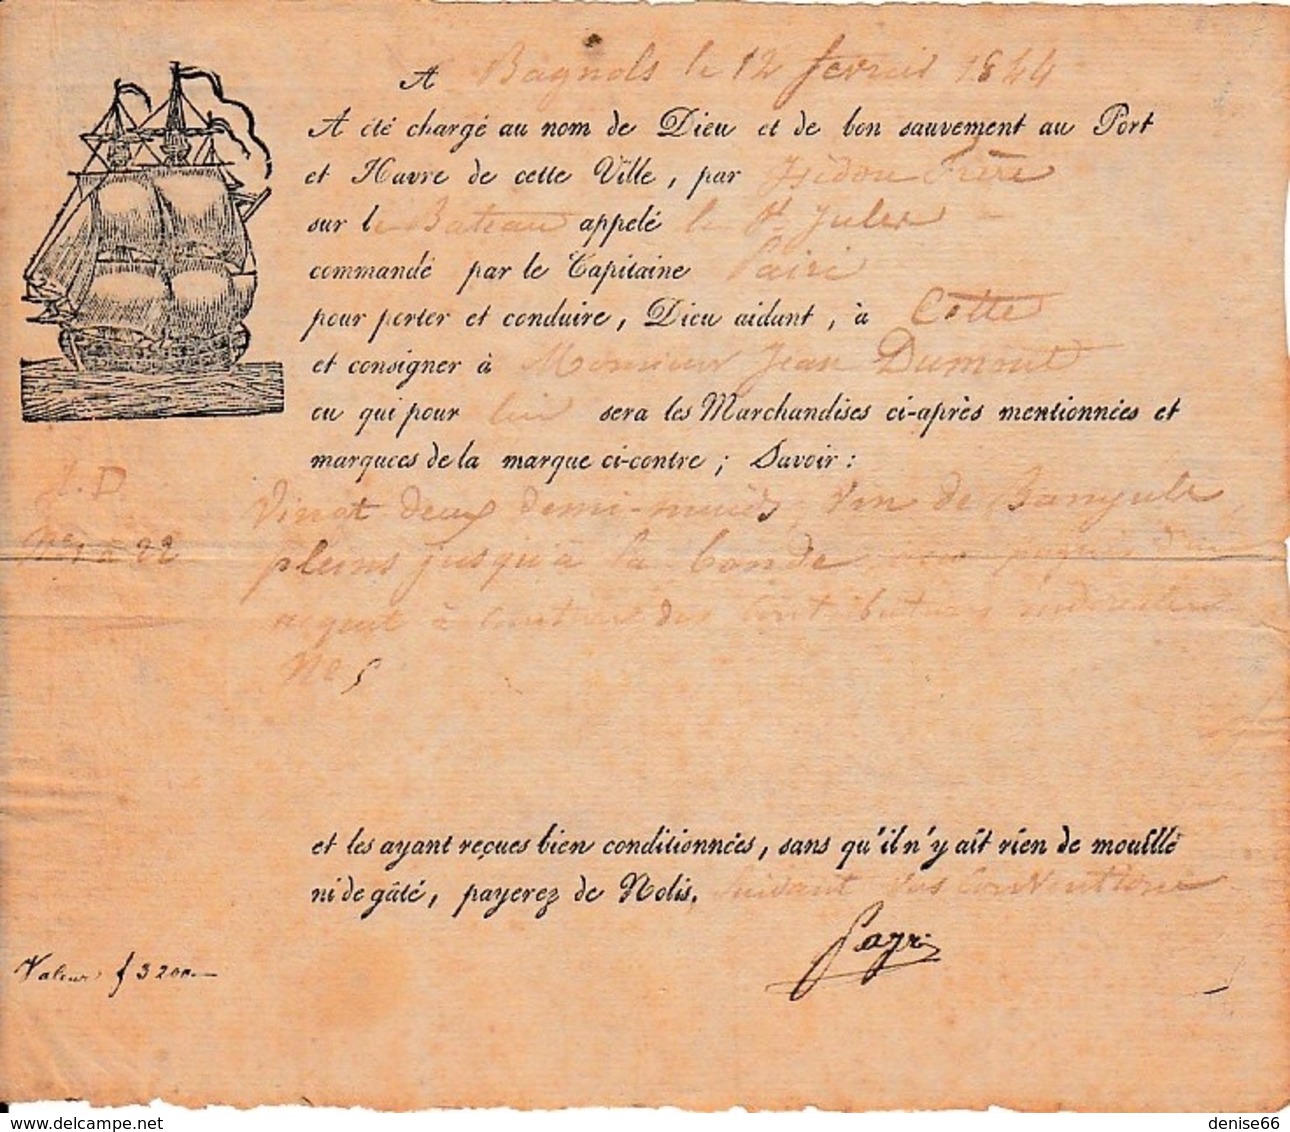 A Bagnols le 12 fevrier 1844
A été chargé au nom de Dieu et de bon sauvement au Port
et Havre de cette Ville, par Isidou Frère
sur le Bateau appelé le St Jules
commandé par le Capitaine
pour porter et conduire, Dieu aidant, à Cette
et consigner à Monsieur Jean Dumont
ou qui pour lui sera les Marchandises ci-après mentionnées et
marquées de la marque ci-contre; Savoir:
J. D
Nos 1 à 22
Vingt deux demi-muids, vin de Banyuls,
pleins jusqu'à la bonde
à des Contributions indirectes
No 5
et les ayant reçues bien conditionnées, sans qu'il n'y ait rien de mouillé
ni de gâté, payerez de Nolis, suivant vos Conventions
Payri
Valeur f 3200
denise66